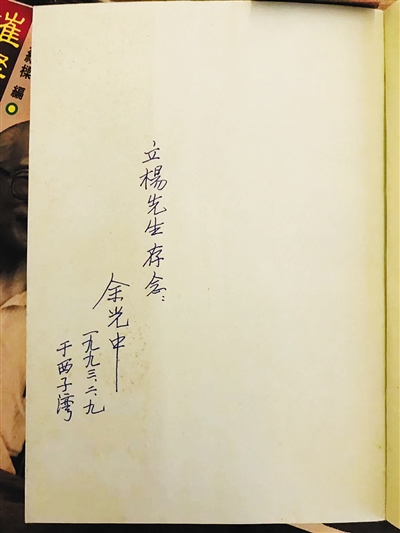 立楊先生存念：
余光中
一九九三、二、九
于西子灣
編